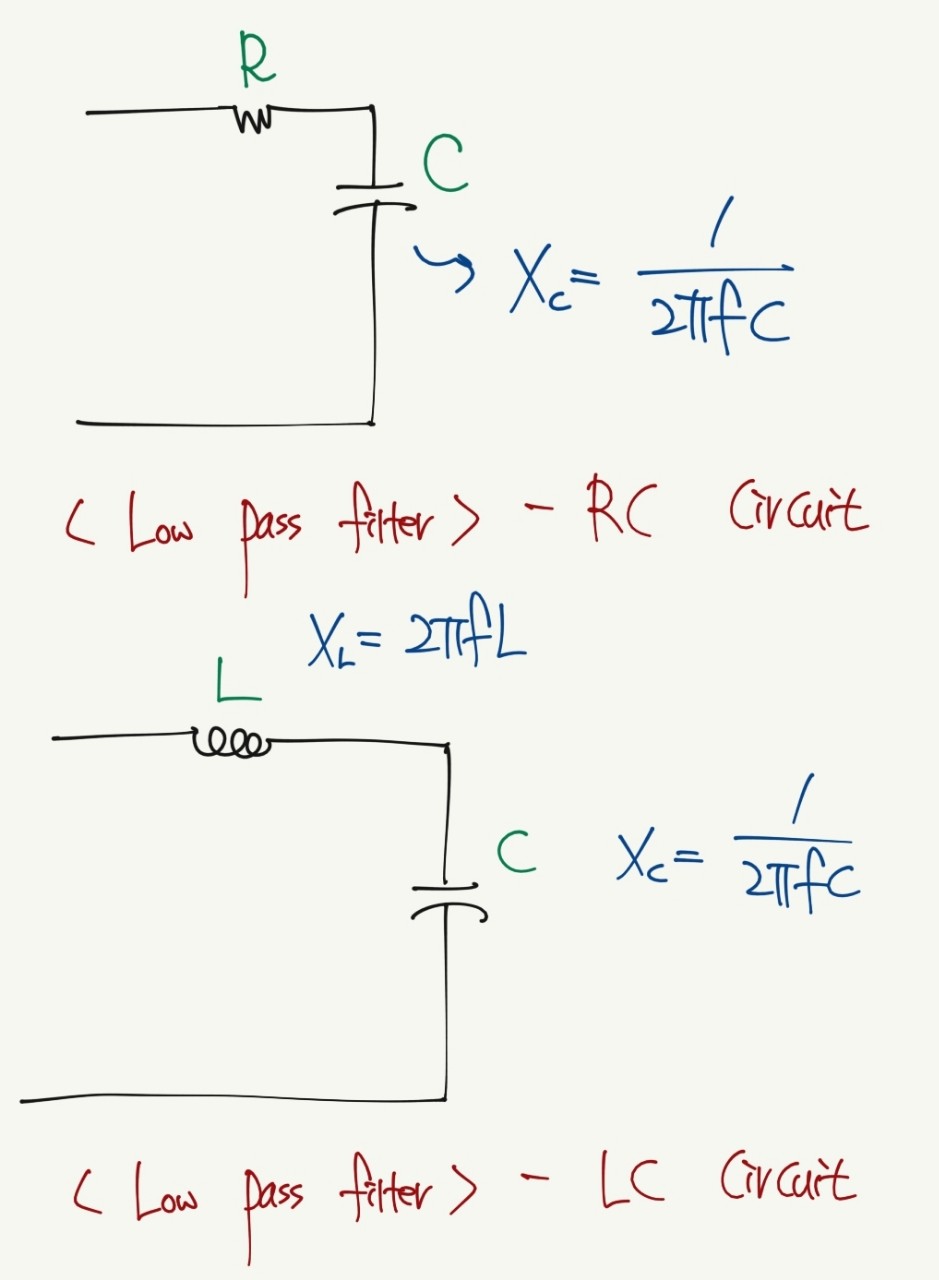 R
C
Xc = 1/2πfC
< Low pass filter > - RC Circuit
XL = 2πfL
L
C
Xc = 1/2πfC
< Low pass filter > - LC Circuit